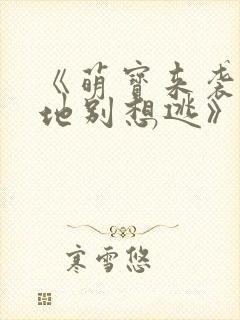 《萌宝来袭
地别想逃》
寒雪悠